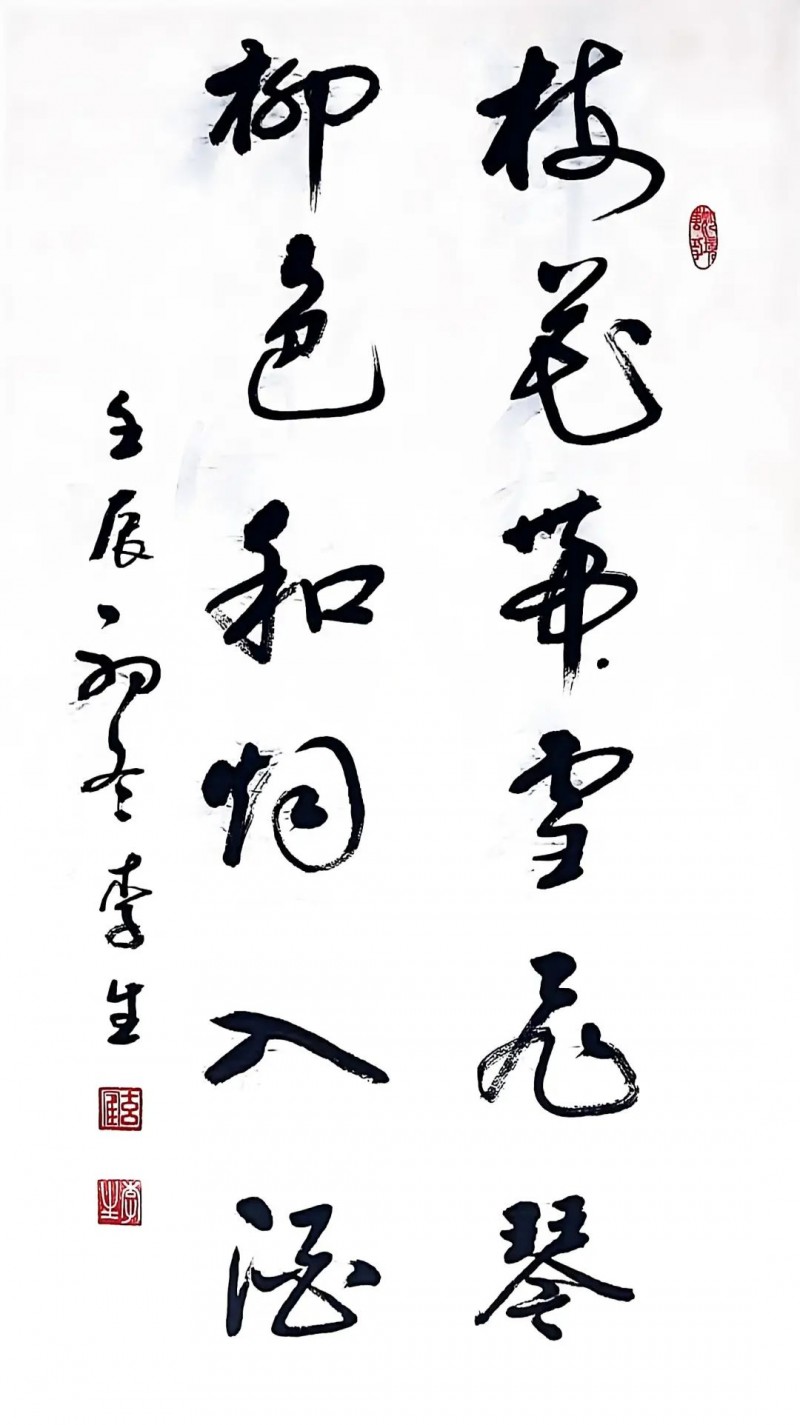 梅花帶雪飛琴
柳色和烟入酒
壬辰初冬李生
李生